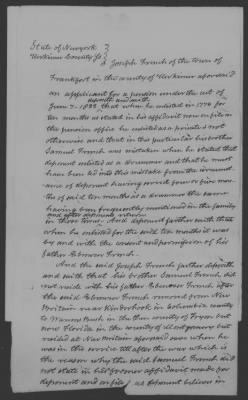 State of New york }
Herkimer County ss } I Joseph French of the town of
Frankfort in the county of Herkimer aforesaid
an applicant for a pension under the act of
June 7. 1832 deposeth and saith that when he enlisted in 1776 for
ten months as stated in his affidavit now on file in
the pension office he enlisted as a private & not
otherwise and that in this particular his brother
Samuel French was mistaken when he stated that
deponent enlisted as a drummer and that he must
have been led into this mistake from the circumst
ance of deponent having served four or five mon
ths of said ten months as a drummer the same
having been frequently mentioned in the family
and after deponents return
in those times. And deponent further saith that
when he enlisted for the said ten months it was
by and with the consent and permission of his
father Ebenezer French.
And the said Joseph French further deposeth
and saith that his brother Samuel French did
not reside with his father Ebenezer French after
the said Ebenezer French removed from New
Britain near Kinderhook in Columbia county
to Warrens Bush in the then county of Tryon but
now Florida in the county of Montgomery but
resided at New Britain aforesaid even when he
was in the service till after the war which is
the reason why the said Samuel French did
not state in his former affidavit made for
deponent and on file, as deponent believes in